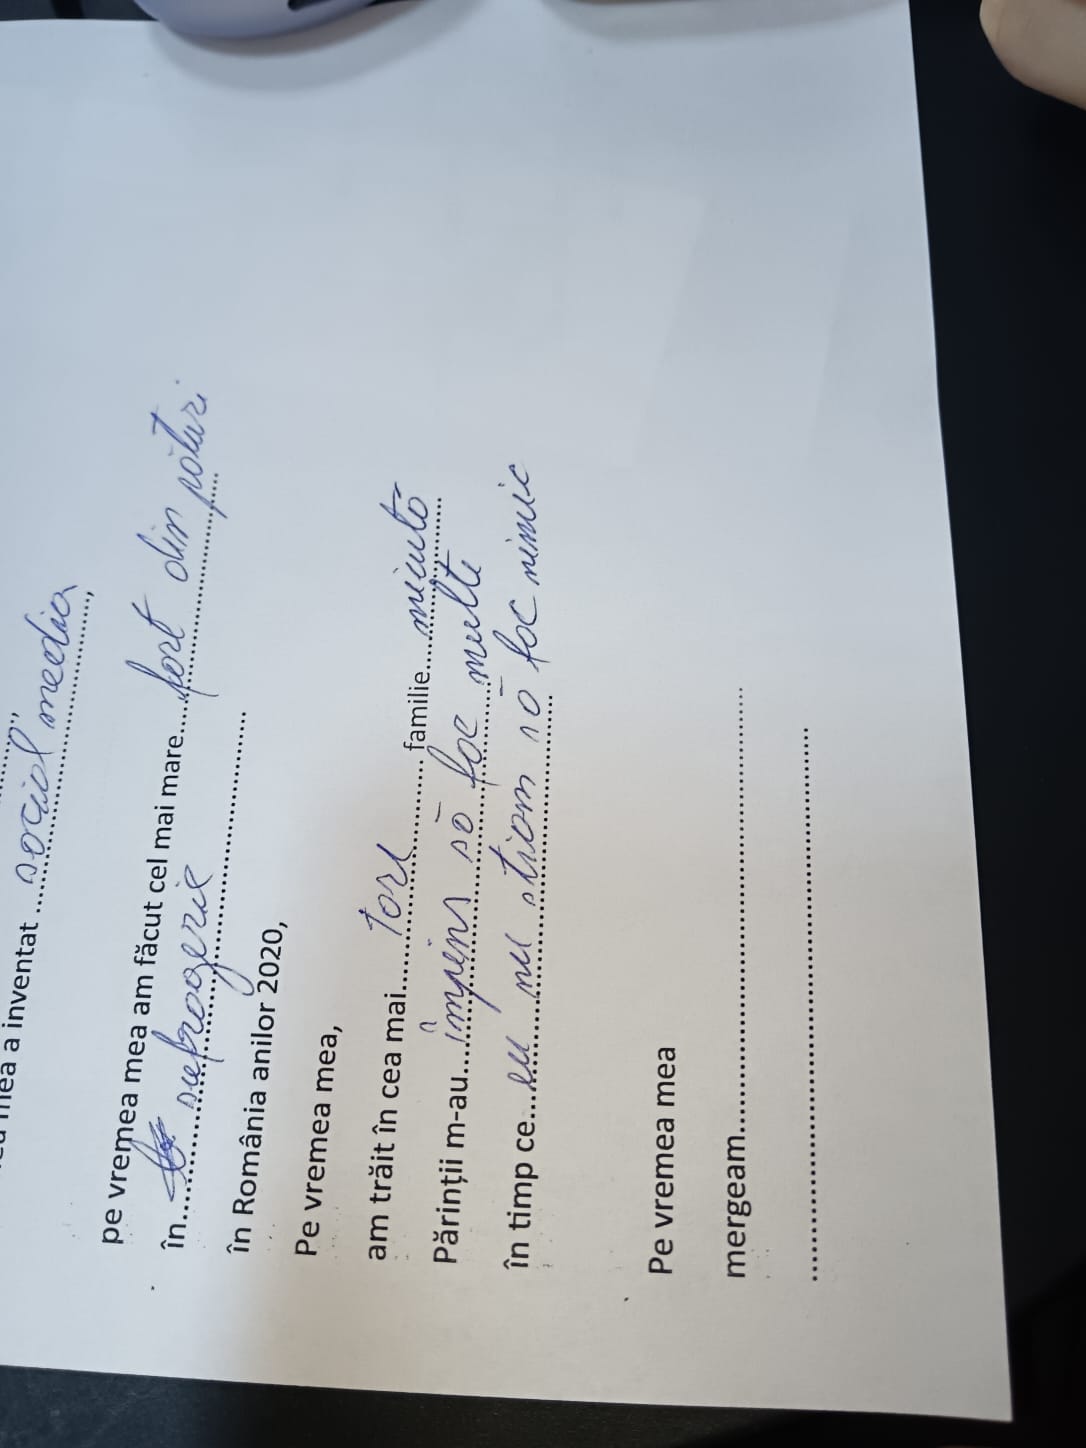 mea a inventat ...social media...,
pe vremea mea am făcut cel mai mare.....fort din pături
în..... sufragerie
în România anilor 2020,
Pe vremea mea,
am trăit în cea mai.....tare..... familie.....micuță
Părinții m-au.....împins să fac multe
în timp ce.....eu nu știam să fac nimic
Pe vremea mea
mergeam.....